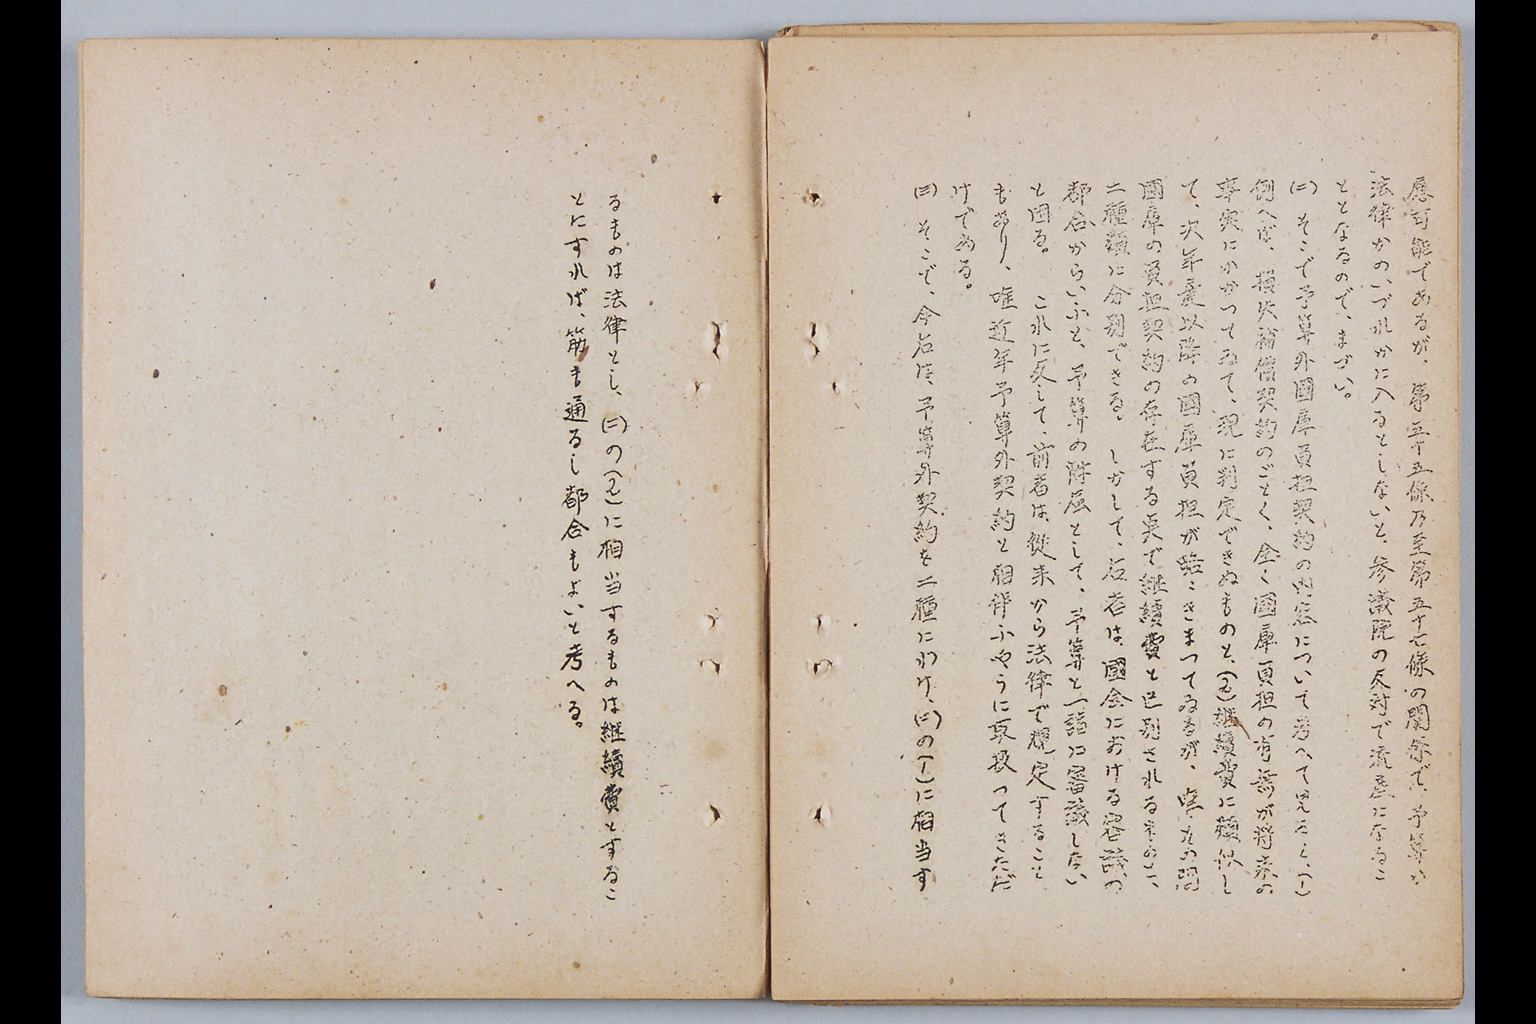 應可能であるが、第五十五條乃至第五十七條の関係で、予算か
法律かのいづれかに入るとしないと、参議院の反対で流産になるこ
ととなるので、まづい。
(二) そこで予算外國庫負担契約の内容について考へて見ると、(イ)
例へば、損失補償契約のごとく、全く國庫負担の有無が将来の
事実にかかつてゐて、現に判定できぬものと、(ロ)継續費に類似し
て、次年度以降の國庫負担が略〻きまつてゐるが、唯その間
國庫の負担契約の存在する点で継續費と区別されるものと、
二種類に分別できる。しかして、后者は、國会における審議の
都合からいふと、予算の附屬として、予算と一諸に審議しない
と困る。これに反して、前者は、従来から法律で規定すること
もあり、唯近年予算外契約と相伴ふやうに取扱つてきただ
けである。
(三) そこで、今后は、予算外契約を二種にわけ、(二)の(イ)に相当す
るものは法律とし、(二)の(ロ)に相当するものは継續費とするこ
とにすれば、筋も通るし都合もよいと考へる。